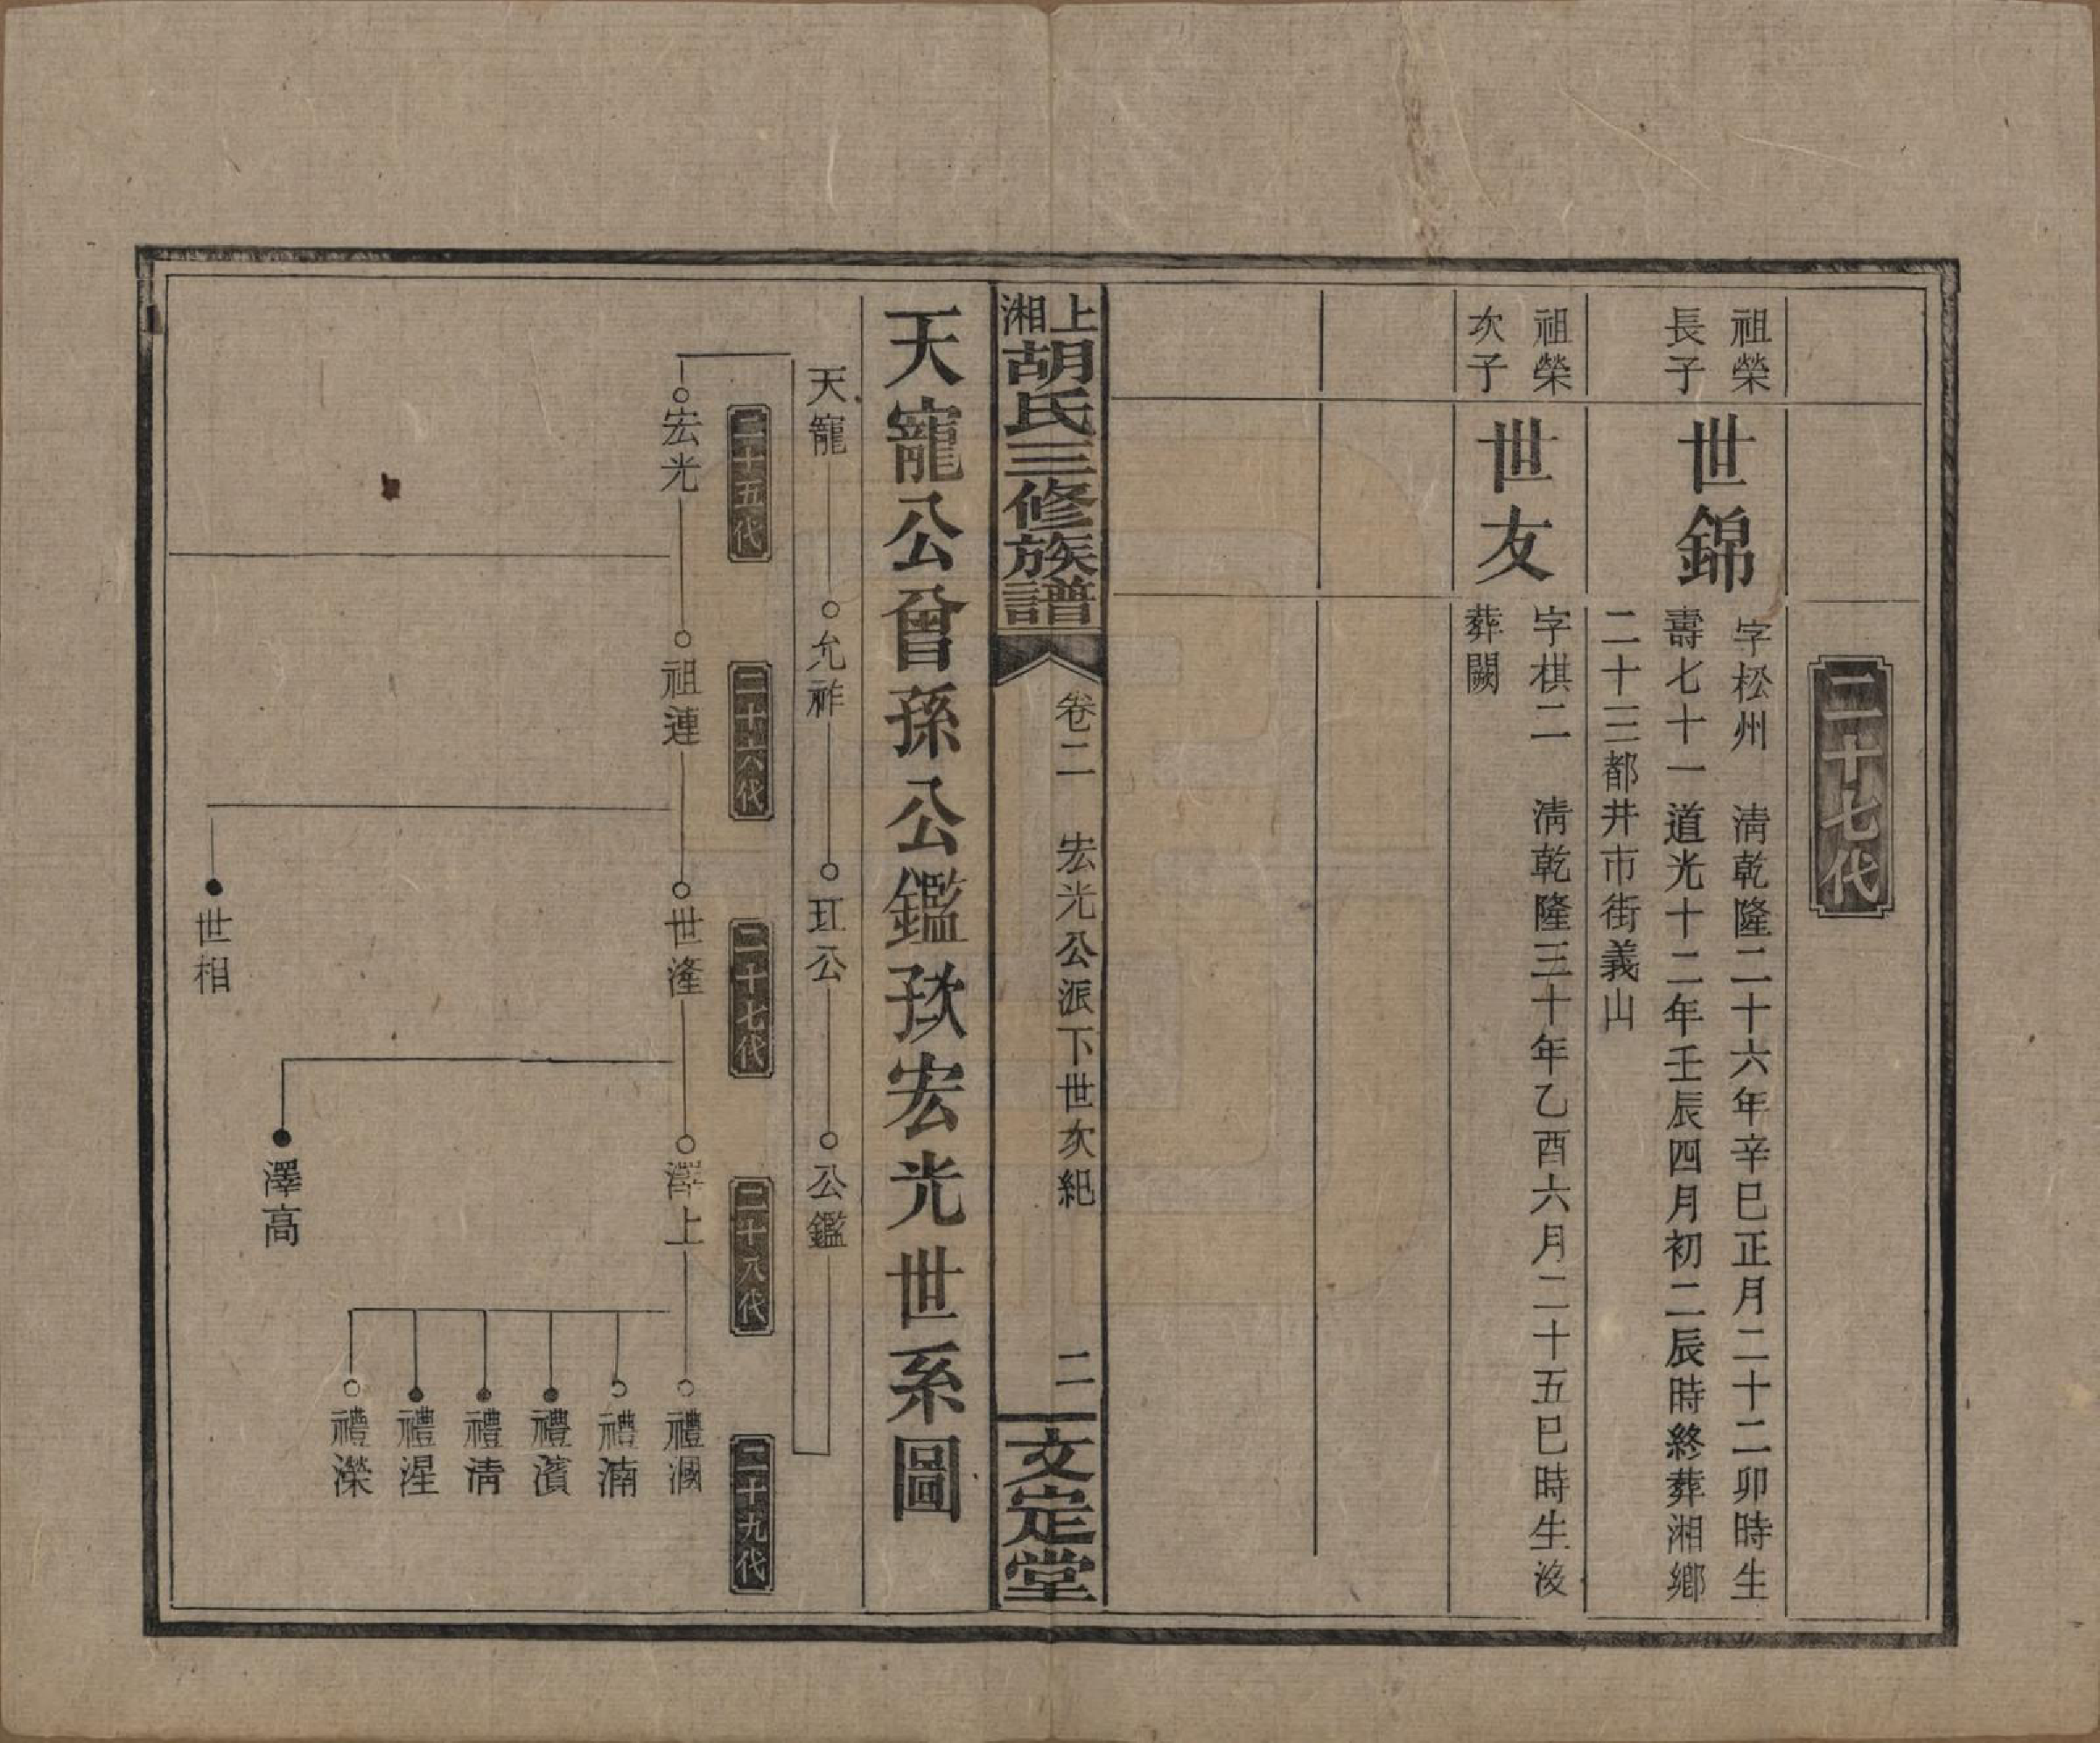 二十七代
祖榮
長子
世錦
字松州　清乾隆二十六年辛巳正月二十二卯時生
壽七十一道光十二年壬辰四月初二辰時終葬湘鄉
二十三都井市街義山
祖榮
次子
世友
字棋二　清乾隆三十年乙酉六月二十五巳時生沒
葬闕
上湘胡氏三修族譜
卷二　宏光公派下世次紀　二
文定堂
天寵公曾孫公鑑孜宏光世系圖
天寵　允祚　玒公　公鑑
二十五代　二十六代　二十七代　二十八代　二十九代
宏光　祖連　世漋　澤上　禮漍
禮湳
禮濱
禮清
禮湦
禮濼
澤高
世相